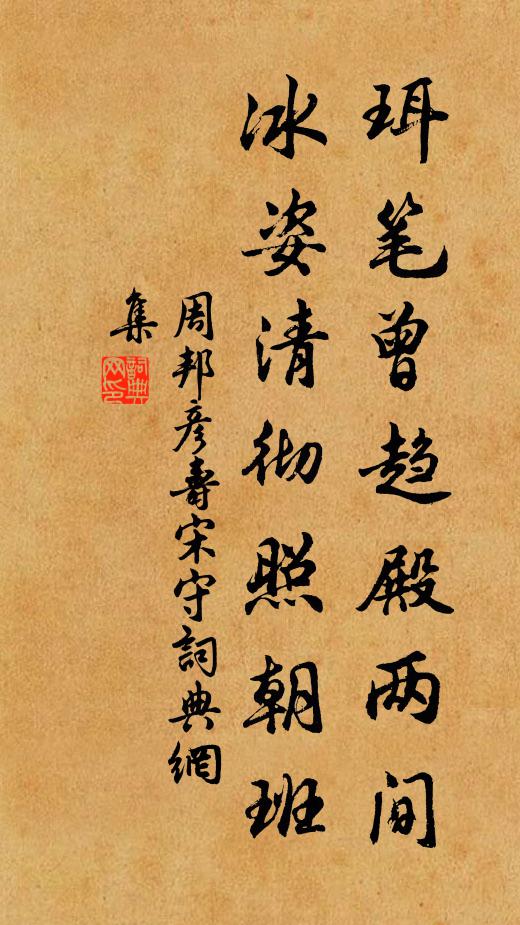 珥笔曾趋殿两间
冰姿清彻照朝班
周邦彦寿宋守詞典網
集
詞典
网印